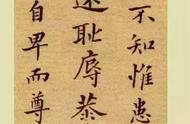 不知惟患
远耻辱恭
自卑而尊